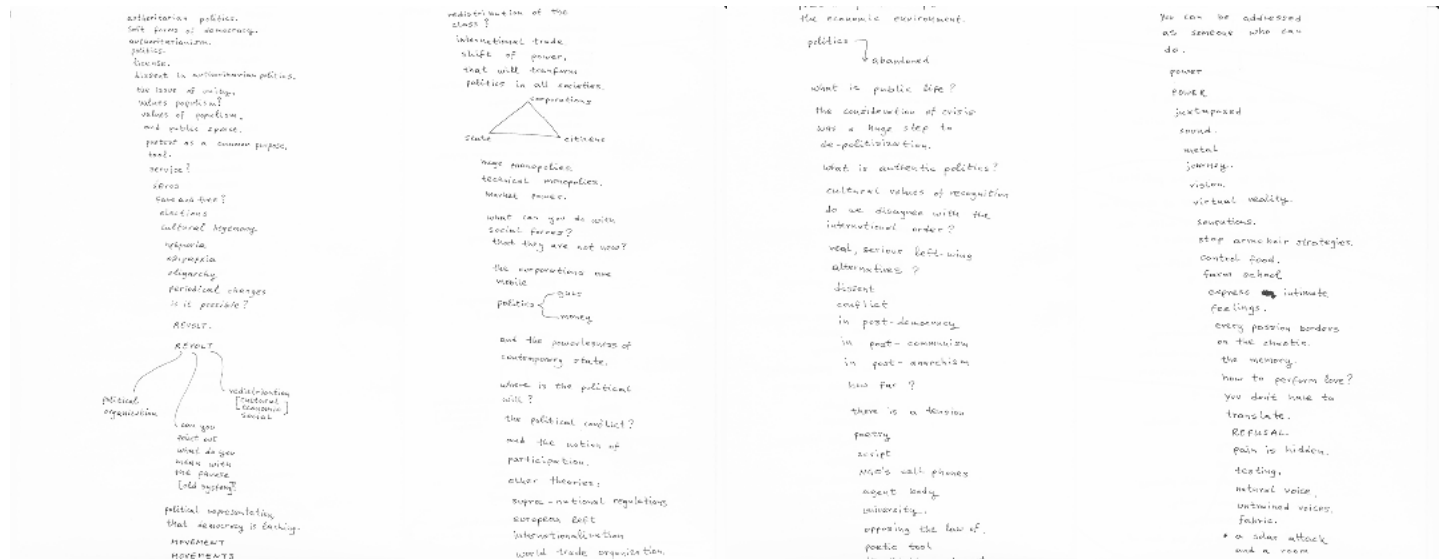 authoritarian politics.
soft forms of democracy.
authoritarianism.
politics.
license.
dissent in authoritarian politics.
the issue of unity.
values populism?
values of populism.
and public space.
pretent as a common purpose.
tool.
service?
elections
cultural hegemony
oligarchy
periodical changes
is it possible?
REVOLT.
REVOLT
political
organization
redistribution
[cultural
economic]
social
can you
point out
what do you
mean with
the phrase
[old system]?
political representation
that democracy is lacking.
MOVEMENT
MOVEMENTS
redistribution of the
class?
international trade
shift of power,
that will transform
politics in all societies.
corporations
state
citizens
huge monopolies
technical monopolies.
market power.
what can you do with
social forces?
that they are not now?
the corporations are
mobile
politics
guts
money
and the powerlessness of
contemporary state.
where is the political
will?
the political conflict?
and the notion of
participation.
other theories:
supra-national regulations
european left
internationalization
world trade organization.
the economic environment.
politics
abandoned
what is public life?
the consideration of crisis
was a huge step to
de-politicization.
what is authentic politics?
cultural values of recognition
do we disagree with the
international order?
real, serious left-wing
alternatives?
dissent
conflict
in post-democracy
in post-communism
in post-anarchism
how far?
there is a tension
poetry
script
NGO's cell phones
agent body
university.
opposing the law of.
poetic tool
you can be addressed
as someone who can
do.
POWER
POWER
juxtaposed
sound.
metal
journey.
vision.
virtual reality.
stop armchair strategies.
control food.
farm school
express intimate
feelings.
every passion borders
on the chaotic.
the memory.
how to perform love?
you don't have to
translate.
REFUSAL.
pain is hidden.
testing.
natural voice.
untrained voices.
fabric.
* a solar attack
and a room